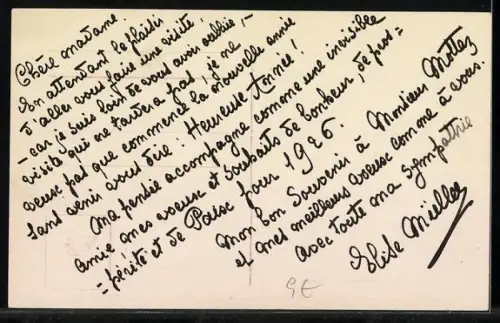 Chère madame.
En attendant le plaisir
d'aller vous faire une visite,
- car je suis loin de vous avoir oubliée, -
visite qui ne tardera pas!, je ne
veux pas que commence la nouvelle année
sans venir vous dire: Heureuse Année!
Ma pensée accompagne comme une invisible
amie mes voeux et souhaits de bonheur, de pros=
=périté et de Paix pour 1926.
Mon bon Souvenir à Monsieur Mottaz
et mes meilleurs voeux comme à vous.
avec toute ma sympathie
Elise Müller